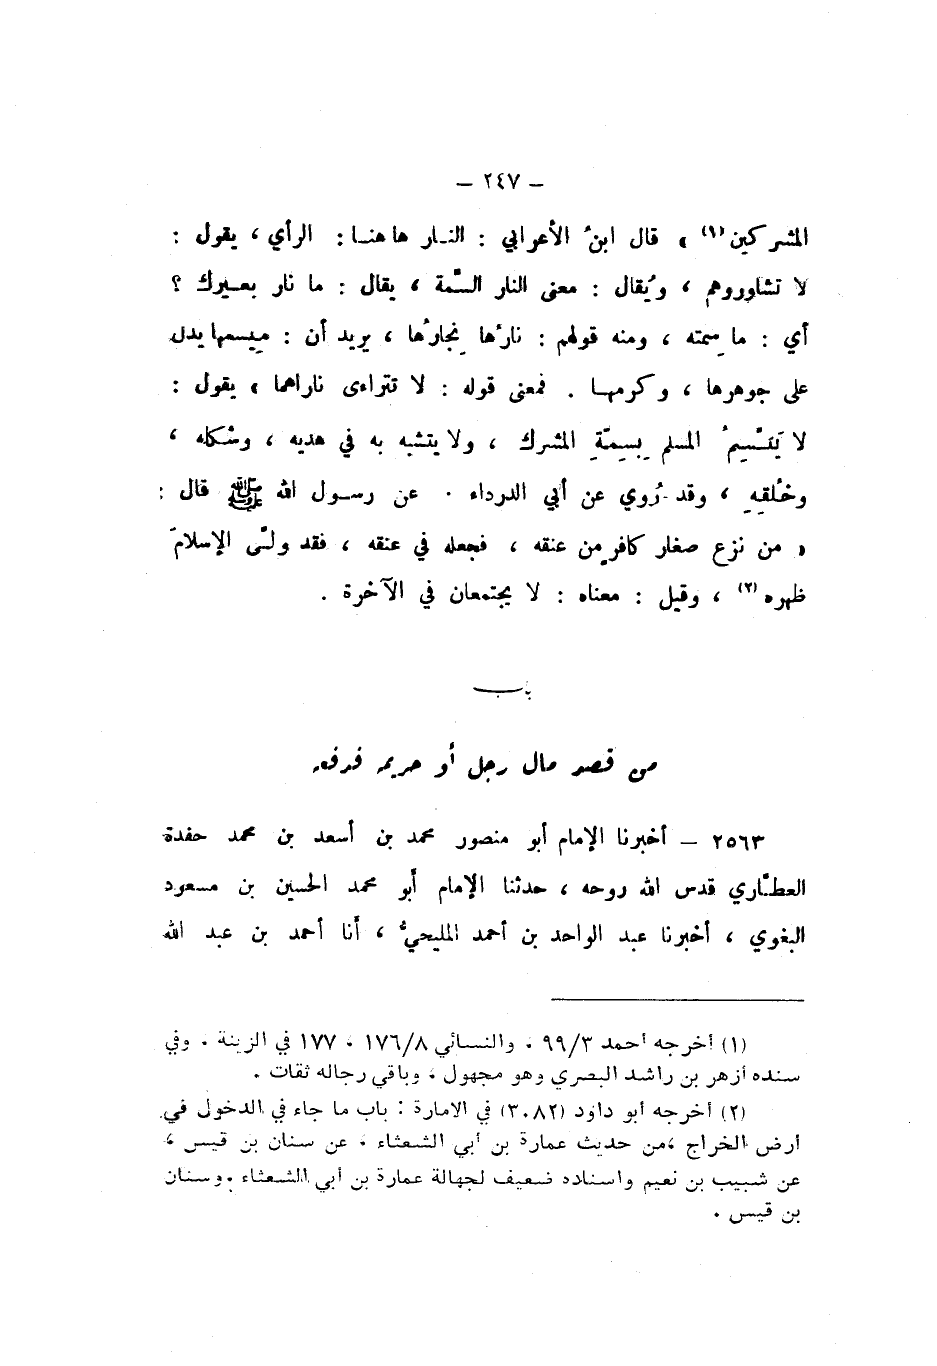 — ٢٤٧ —
المشركين (١) » قال ابنُ الأعرابي : النـار هاهنـا : الرأي ، يقول :
لا تشاوروهم ، ويُقال : معنى النار السِّمة ، يقال : ما نار بعـيرك ؟
أي : ما سِمته ، ومنه قولهم : نارُها نِجارُها ، يريد أن : مِيسمها يدل
على جوهرها ، وكرمهـا . فمعنى قوله : لا تتراءى ناراهما » يقول :
لا يَتَّسِمُ المسلم بِسِمَةِ المشرك ، ولا يتشبه به في هديه ، وشكله ،
وخُلقِهِ ، وقد رُوي عن أبي الدرداء . عن رسـول الله ﷺ قال :
« من نزع صغار كافرٍ من عنقه ، فجعله في عنقه ، فقد ولَّى الإسلامَ
ظهره (٢) ، وقيل : معناه : لا يجتمعان في الآخرة .
باب
من قصد مال رجل أو حريمه فدفعه
٢٥٦٣ — أخبرنا الإمام أبو منصور محمد بن أسعد بن محمد حفدة
العطَّاري قدس الله روحه ، حدثنا الإمام أبو محمد الحسين بن مسعود
البغوي ، أخبرنا عبد الواحد بن أحمد المليحيُّ ، أنا أحمد بن عبد الله
(١) أخرجه أحمد ٩٩/٣ ، والنسائي ١٧٦/٨ ، ١٧٧ في الزينة ، وفي
سنده أزهر بن راشد البصري وهو مجهول ، وباقي رجاله ثقات .
(٢) أخرجه أبو داود (٣٠٨٢) في الامارة : باب ما جاء في الدخول في
أرض الخراج ،من حديث عمارة بن أبي الشعثاء ، عن سنان بن قيس ،
عن شبيب بن نعيم واسناده ضعيف لجهالة عمارة بن أبي الشعثاء . وسنان
بن قيس .